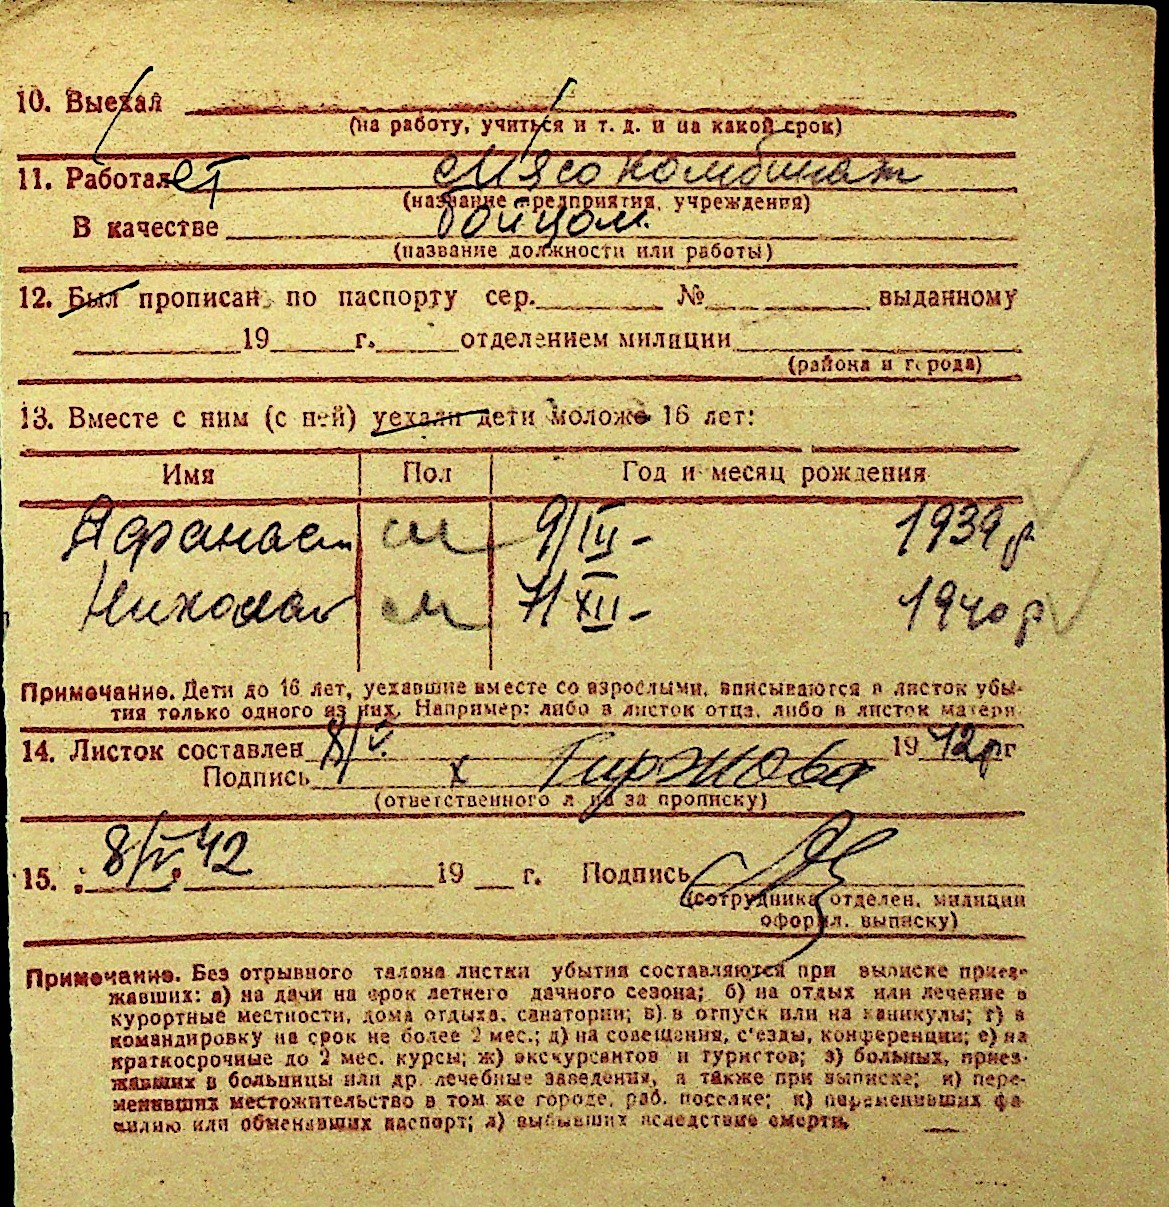 10. Выехал
(на работу, учиться и т. д. и на какой срок)
11. Работает Мясокомбинат
(название предприятия, учреждения)
В качестве бойцом
(название должности или работы)
12. Был прописан по паспорту сер. № выданному
19 г. отделением милиции
(района и города)
13. Вместе с ним (с ней) уехали дети моложе 16 лет:
Имя Пол Год и месяц рождения
Афанаси м 9/III - 1939 г
Николай м 7/XII - 1940 г
Примечание. Дети до 16 лет, уехавшие вместе со взрослыми, вписываются в листок убы-
тия только одного из них. Например: либо в листок отца, либо в листок матери.
14. Листок составлен 8/V. 1942 г
Подпись х Гиржова
(ответственного лица за прописку)
15. 8/V 42 19 г. Подпись
(сотрудника отделен. милиции
оформл. выписку)
Примечание. Без отрывного талона листки убытия составляются при выписке приез-
жавших: а) на дачи на срок летнего дачного сезона; б) на отдых или лечение в
курортные местности, дома отдыха, санатории; в) в отпуск или на каникулы; г) в
командировку на срок не более 2 мес.; д) на совещания, с'езды, конференции; е) на
краткосрочные до 2 мес. курсы; ж) экскурсантов и туристов; з) больных, приез-
жавших в больницы или др. лечебные заведения, а также при выписке; и) пере-
менивших местожительство в том же городе, раб. поселке; к) переменивших фа-
милию или обменявших паспорт; л) выбывших вследствие смерти.